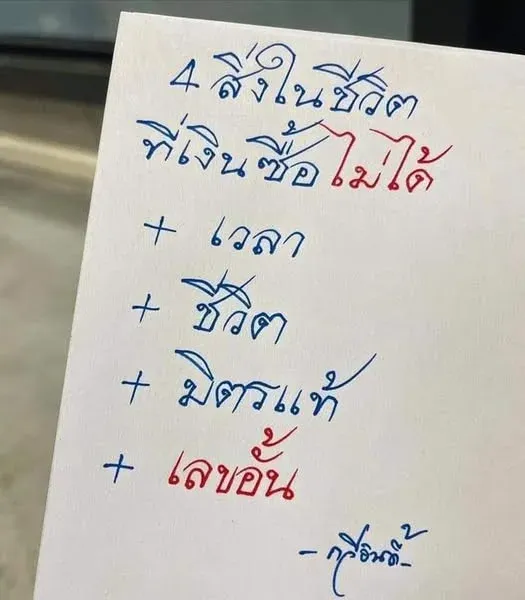 4 สิ่งในชีวิต
ที่เงินซื้อไม่ได้
+ เวลา
+ ชีวิต
+ มิตรแท้
+ เลขอั้น